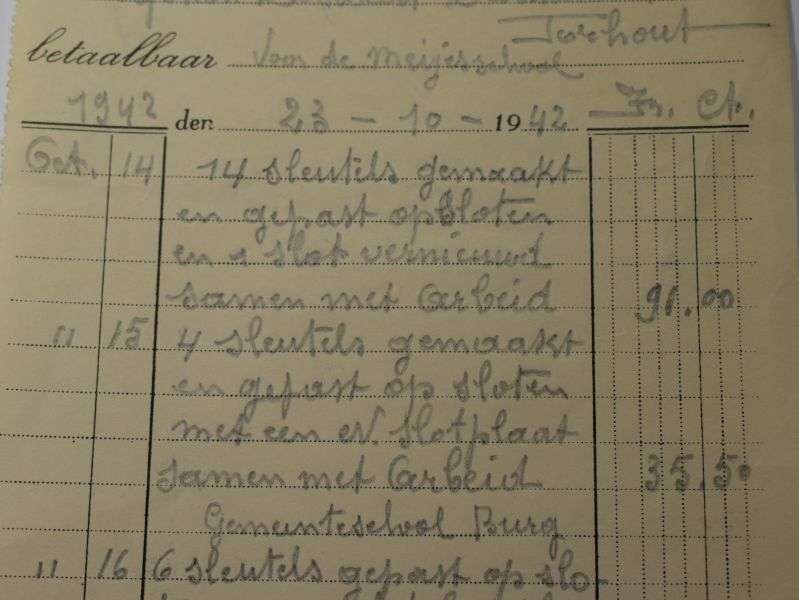 Torhout
betaalbaar Voor de Meijesschool
1942 den 23 - 10 - 1942 Fr. Ct.
Oct. 14 14 sleutels gemaakt
en gepast op Sloten
en 1 slot vernieuwd
samen met Arbeid 91.00
" 15 4 sleutels gemaakt
en gepast op sloten
met een N. slotplaat
samen met Arbeid 35.50
Gemeenteschool Burg
" 16 6 sleutels gepast op slo-